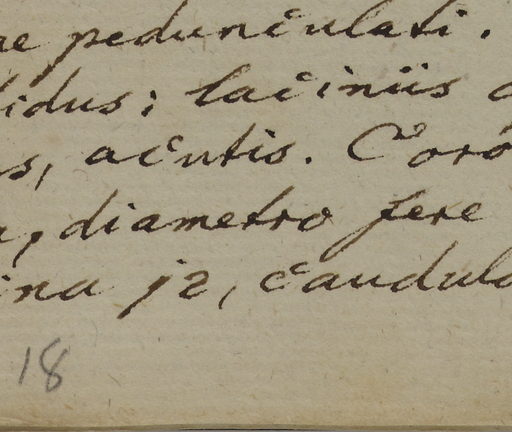 ae pedunculati.
fidus; laciniis
s, acutis. Coro
, diametro fere
ina 12, caudula
18